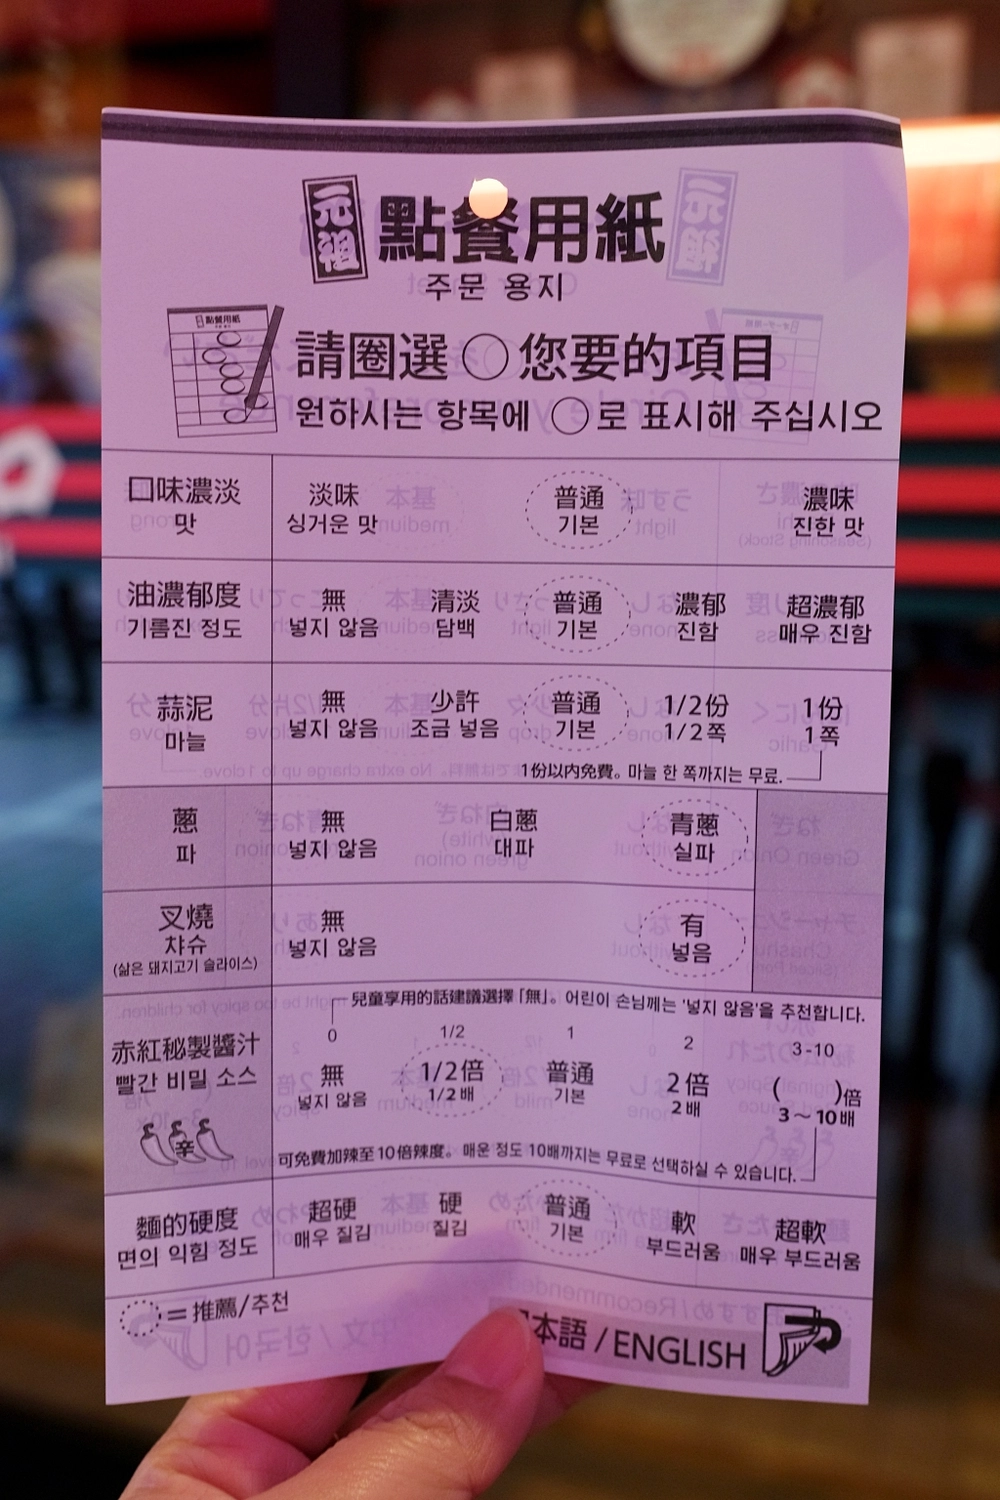 元祖
點餐用紙
주문 용지
點餐用紙
請圈選◯您要的項目
원하시는 항목에 ◯로 표시해 주십시오
口味濃淡 淡味 普通 濃味
맛 싱거운 맛 기본 진한 맛
油濃郁度 無 清淡 普通 濃郁 超濃郁
기름진 정도 넣지 않음 담백 기본 진함 매우 진함
蒜泥 無 少許 普通 1/2份 1份
마늘 넣지 않음 조금 넣음 기본 1/2쪽 1쪽
1份以内免費。마늘 한 쪽까지는 무료.
蔥 無 白蔥 青蔥
파 넣지 않음 대파 실파
叉燒 無 有
챠슈 넣지 않음 넣음
(삶은 돼지고기 슬라이스)
兒童享用的話建議選擇「無」。어린이 손님께는 '넣지 않음'을 추천합니다.
0 1/2 1 2 3-10
赤紅秘製醬汁 無 1/2倍 普通 2倍 ( )倍
빨간 비밀 소스 넣지 않음 1/2배 기본 2배 3~10배
辛
可免費加辣至10倍辣度。매운 정도 10배까지는 무료로 선택하실 수 있습니다.
麵的硬度 超硬 硬 普通 軟 超軟
면의 익힘 정도 매우 질김 질김 기본 부드러움 매우 부드러움
= 推薦/추천
本語 / ENGLISH